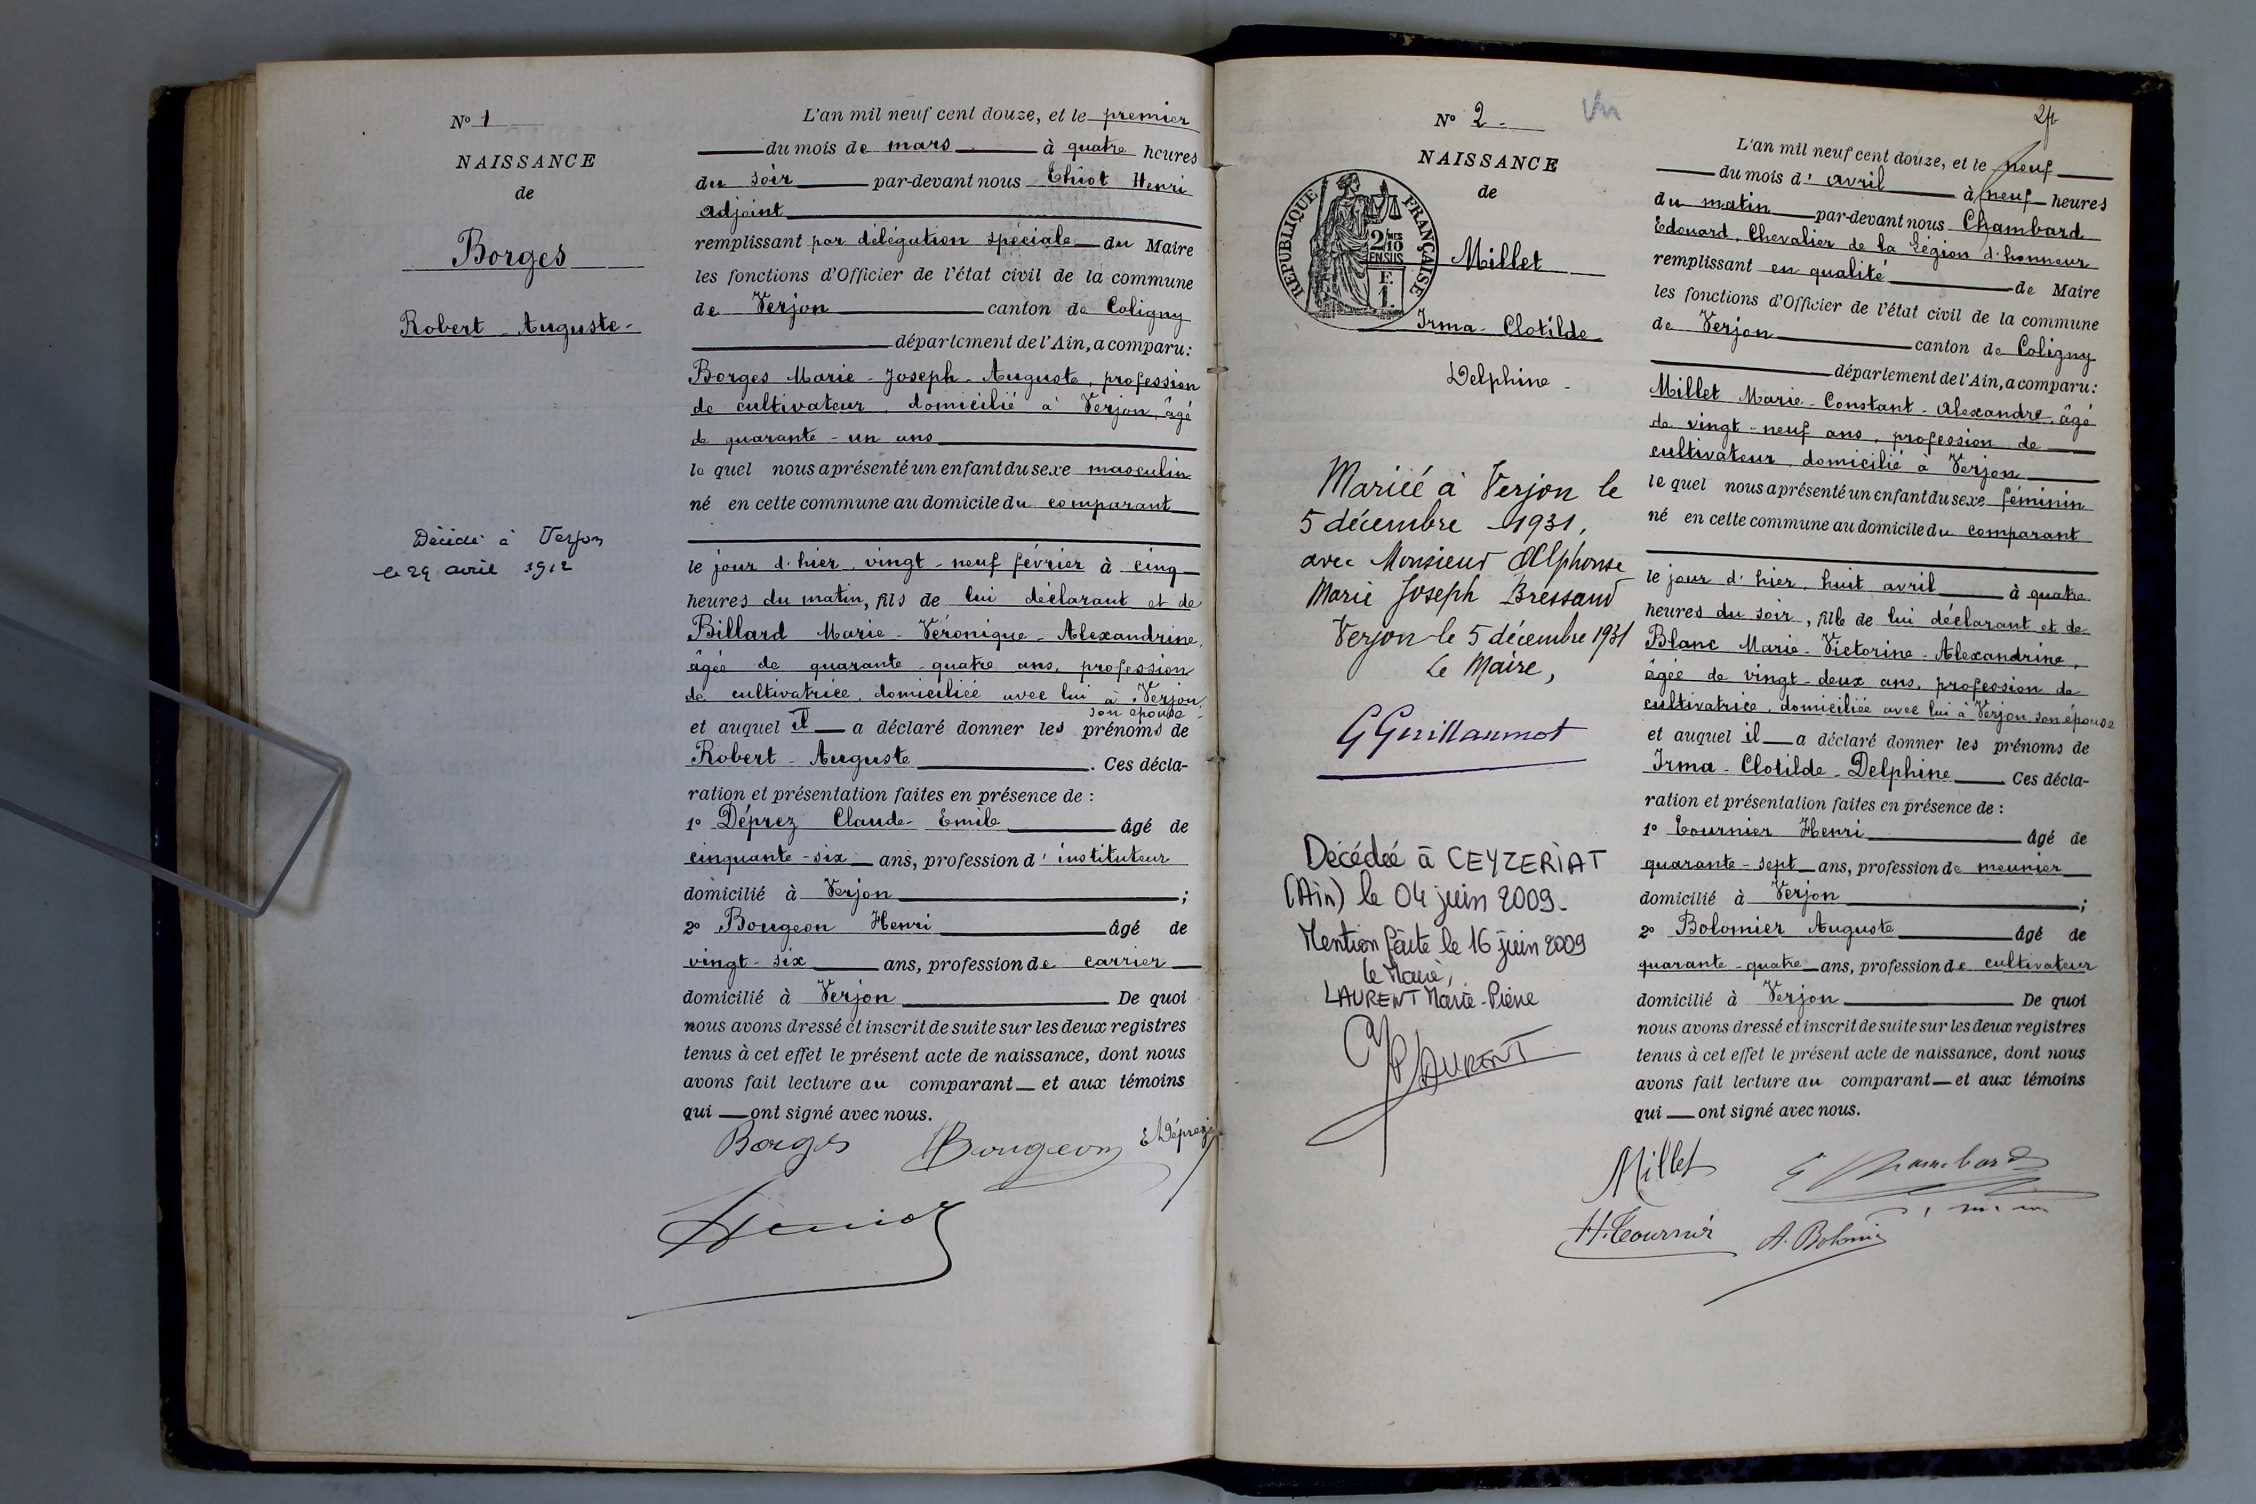 N° 1
NAISSANCE
de
Borges
Robert Auguste-
Décédé à Verjon
le 29 avril 1912
L'an mil neuf cent douze, et le premier
du mois de mars à quatre heures
du soir par-devant nous Thiot Henri
adjoint
remplissant par délégation spéciale du Maire
les fonctions d'Officier de l'état civil de la commune
de Verjon canton de Coligny
département de l'Ain, a comparu:
Borges Marie-Joseph-Auguste, profession
de cultivateur, domicilié à Verjon, âgé
de quarante-un ans
le quel nous a présenté un enfant du sexe masculin
né en cette commune au domicile du comparant
le jour d'hier, vingt-neuf février à cinq
heures du matin, fils de lui déclarant et de
Billard Marie-Véronique-Alexandrine,
âgée de quarante-quatre ans, profession
de cultivatrice, domiciliée avec lui à Verjon,
son épouse-
et auquel il a déclaré donner les prénoms de
Robert-Auguste. Ces décla-
ration et présentation faites en présence de:
1° Déprez Claude-Emile âgé de
cinquante-six ans, profession d'instituteur
domicilié à Verjon;
2° Bougeon Henri âgé de
vingt-six ans, profession de carrier
domicilié à Verjon De quoi
nous avons dressé et inscrit de suite sur les deux registres
tenus à cet effet le présent acte de naissance, dont nous
avons fait lecture au comparant et aux témoins
qui ont signé avec nous.
Borges Bougeon E Déprez
N° 2-
NAISSANCE
de
RÉPUBLIQUE FRANÇAISE
2/10MES
EN SUS
F.
1.
Millet
Irma-Clotilde
Delphine-
Mariée à Verjon le
5 décembre 1931,
avec Monsieur Alphonse
Marie Joseph Bressand
Verjon le 5 décembre 1931
Le Maire,
G Guillaumot
Décédée à CEYZERIAT
(Ain) le 04 juin 2009.
Mention faite le 16 juin 2009
le Maire,
LAURENT Marie-Pierre
LAURENT
L'an mil neuf cent douze, et le neuf
du mois d'avril à neuf heures
du matin par-devant nous Chambard
Edouard, Chevalier de la Légion d'honneur
remplissant en qualité de Maire
les fonctions d'Officier de l'état civil de la commune
de Verjon canton de Coligny
département de l'Ain, a comparu:
Millet Marie-Constant-Alexandre, âgé
de vingt-neuf ans, profession de
cultivateur domicilié à Verjon
le quel nous a présenté un enfant du sexe féminin
né en cette commune au domicile du comparant
le jour d'hier, huit avril à quatre
heures du soir, fille de lui déclarant et de
Blanc Marie-Victorine-Alexandrine,
âgée de vingt-deux ans, profession de
cultivatrice, domiciliée avec lui à Verjon, son épouse
et auquel il a déclaré donner les prénoms de
Irma-Clotilde-Delphine Ces décla-
ration et présentation faites en présence de:
1° Tournier Henri âgé de
quarante-sept ans, profession de meunier
domicilié à Verjon;
2° Bolomier Auguste âgé de
quarante-quatre ans, profession de cultivateur
domicilié à Verjon De quoi
nous avons dressé et inscrit de suite sur les deux registres
tenus à cet effet le présent acte de naissance, dont nous
avons fait lecture au comparant et aux témoins
qui ont signé avec nous.
Millet E Chambard
H. Tournier A. Bolomier